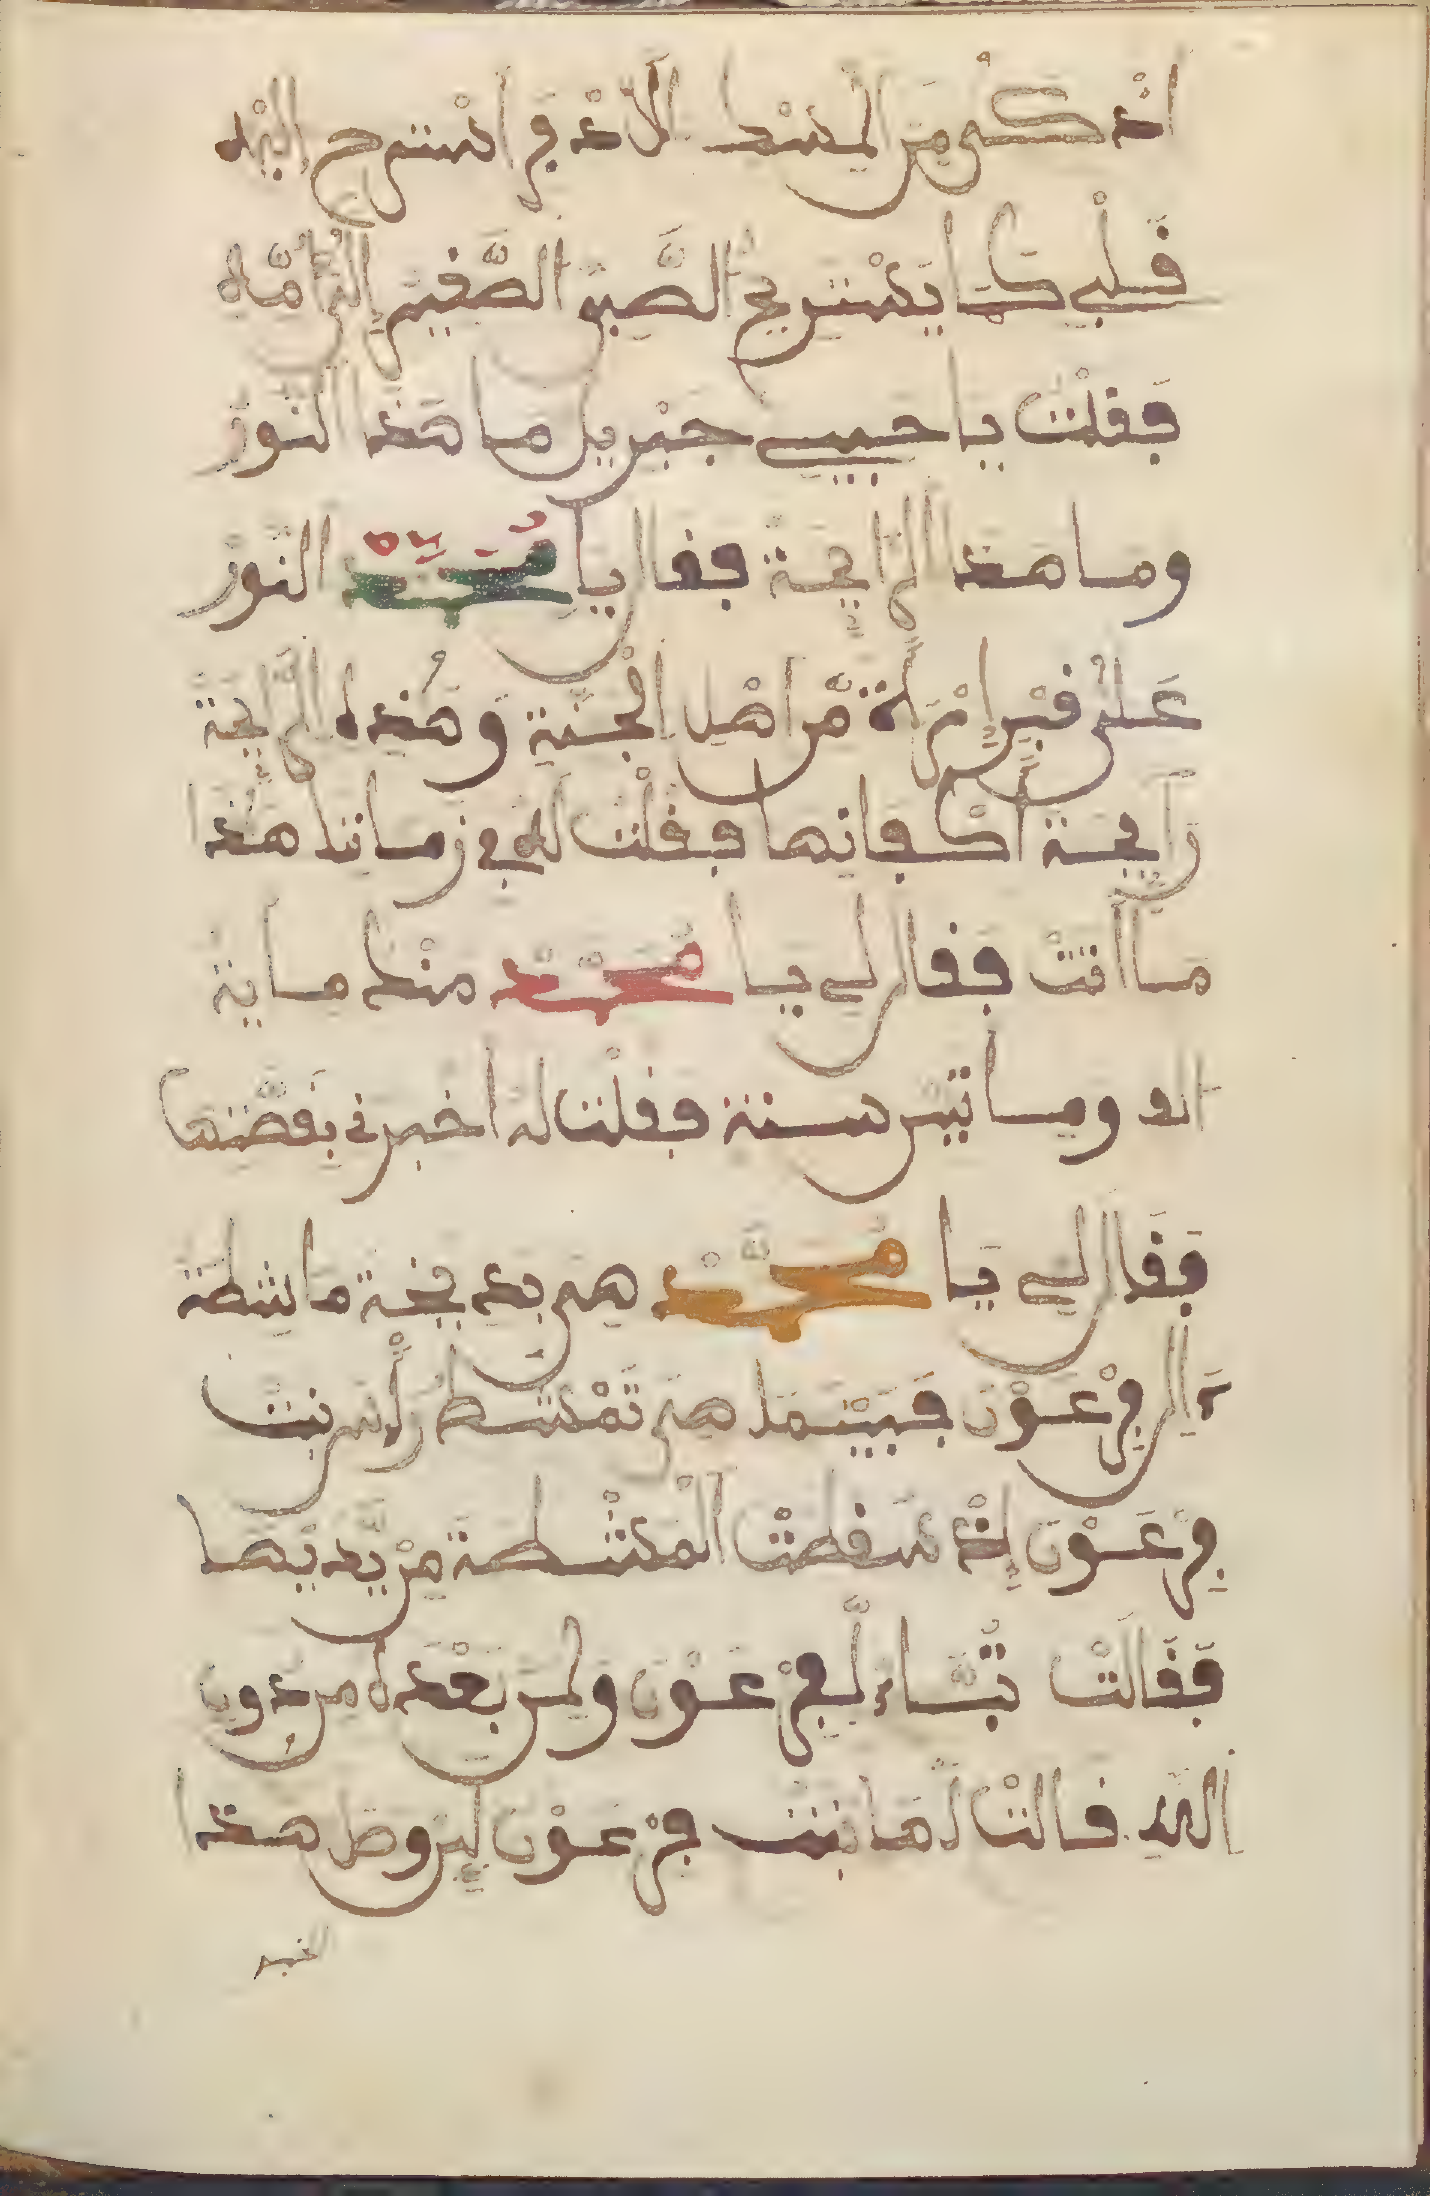 اذكى من المسد الاذفر استرح اليه
قلبي كما يستريح الصبي الصغير إلى أمه
فقلت يا حبيبي جبريل ما هذا النور
وما هذا الرايحة فقال يا محمد النور
على قبر إمرأة من اهل الجنة وهذه الرايحة
رايحة أكفانها فقلت له في زماننا هذا
ما اتت فقال لي يا محمد منذ ماية
الف وماتين سنة فقلت له اخبرني بقصتها
فقال لي يا محمد هي بديخة ماشطة
ءال فرعون فبينما هي تمشط رأس بنت
فرعون إذ سقطت الممشطة من يديها
فقالت تبا لفرعون ولمن بعده من دون
الله قالت لها بنت فرعون ليروط هذا
الخبر